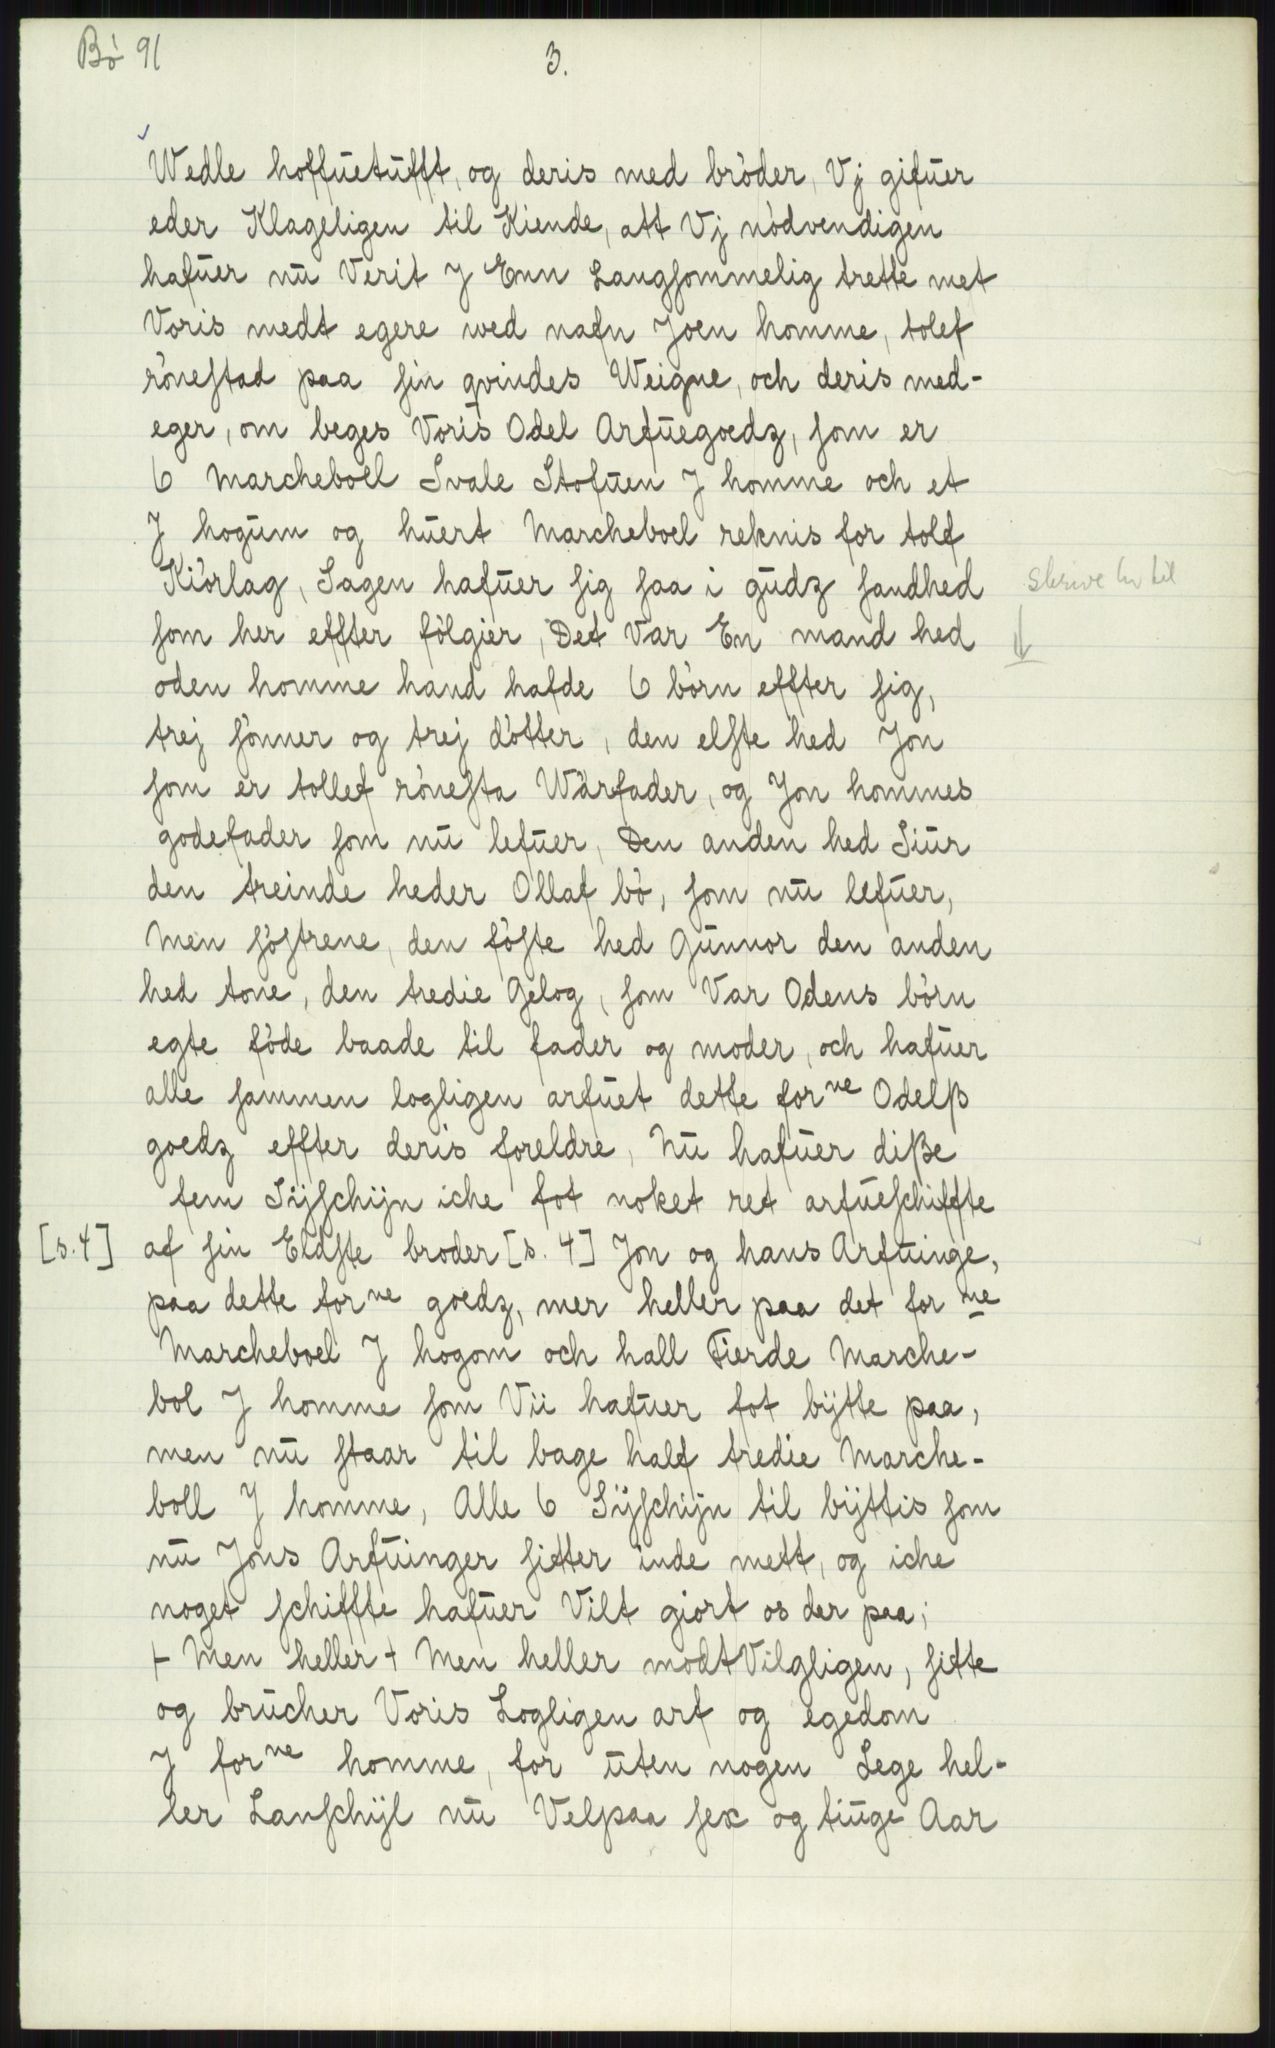 Bö 91
3.
Wedle hoffuetufft, og deris med bröder, Vj gifuer
eder Klageligen til Kiende, att Vj nödvendigen
hafuer nu Verit J Enn Langsommelig trette met
Voris medt egere wed nafn Joen homme, tolef
rönestad paa sin qvindes Weigne, och deris med-
eger, om beges Voris Odel Arfuegoedz, som er
6 Marcheboell Svale Stofuen J homme och et
J hogum og huert Marcheboel reknis for tolf
Kiörlag, Sagen hafuer sig saa i gudz sandhed
skrive hr til
som her effter fölgier, Det Var En mand hed
oden homme hand hafde 6 börn effter sig,
trej sönner og trej dötter, den elste hed Jon
som er tollef rönesta Wärfader, og Jon hommes
godefader som nu lefuer, Den anden hed Siur
den treinde heder Ollaf bö, som nu lefuer,
Men söstrene, den föste hed Gunnor den anden
hed tone, den tredie Gelog, som Var Odens börn
egte föde baade til fader og moder, och hafuer
alle sammen logligen arfuet dette forne Odelß
goedz effter deris foreldre, Nu hafuer diße
fem Sÿschijn iche fot noket ret arfueschiffte
[s. 4] af sin Eldste broder [s. 4] Jon og hans Arfuinge,
paa dette forne goedz, mer heller paa det forne
Marcheboel J hogom och hall Fierde Marche-
bol J homme som Vii hafuer fot bÿtte paa,
men nu staar til bage half tredie Marche-
boll J homme, Alle 6 Sÿschijn til bÿttis som
nu Jons Arfuinger sitter inde mett, og iche
noget schiffte hafuer Vilt giort os der paa;
+ Men heller + Men heller modt Vilgligen, sitte
og brucher Voris Logligen arf og egedom
J forne homme, for uten nogen Lege hel-
ler Lanschÿl nu Velpaa sex og tiuge Aar